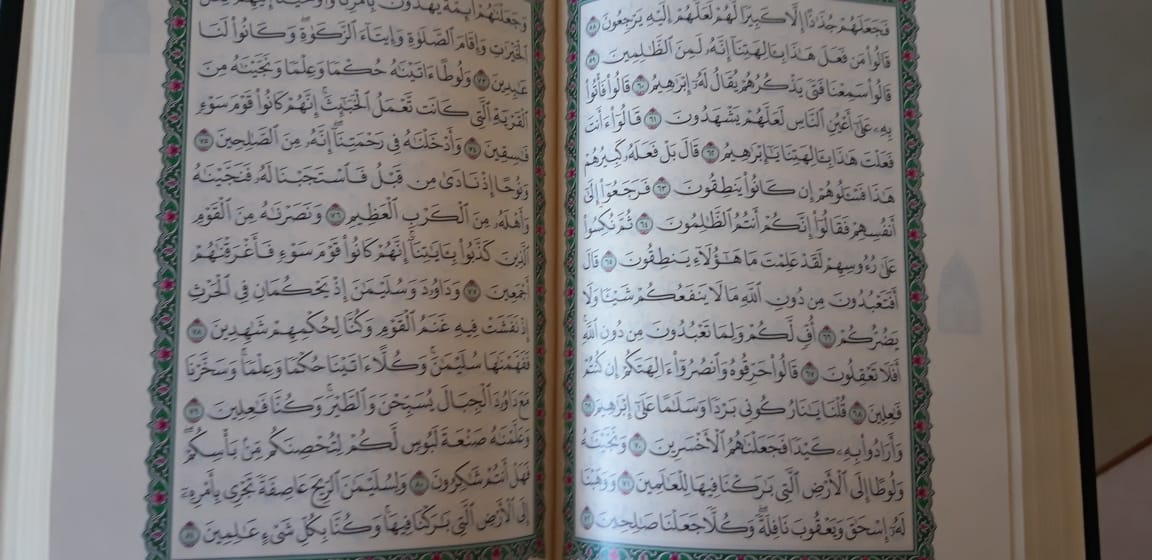 فَجَعَلَهُمْ جُذَٰذًا إِلَّا كَبِيرًا لَّهُمْ لَعَلَّهُمْ إِلَيْهِ يَرْجِعُونَ ٥٨
قَالُوا۟ مَن فَعَلَ هَٰذَا بِـَٔالِهَتِنَآ إِنَّهُۥ لَمِنَ ٱلظَّٰلِمِينَ ٥٩
قَالُوا۟ سَمِعْنَا فَتًى يَذْكُرُهُمْ يُقَالُ لَهُۥٓ إِبْرَٰهِيمُ ٦٠ قَالُوا۟ فَأْتُوا۟
بِهِۦ عَلَىٰٓ أَعْيُنِ ٱلنَّاسِ لَعَلَّهُمْ يَشْهَدُونَ ٦١ قَالُوٓا۟ ءَأَنتَ
فَعَلْتَ هَٰذَا بِـَٔالِهَتِنَا يَٰٓإِبْرَٰهِيمُ ٦٢ قَالَ بَلْ فَعَلَهُۥ كَبِيرُهُمْ
هَٰذَا فَسْـَٔلُوهُمْ إِن كَانُوا۟ يَنطِقُونَ ٦٣ فَرَجَعُوٓا۟ إِلَىٰٓ
أَنفُسِهِمْ فَقَالُوٓا۟ إِنَّكُمْ أَنتُمُ ٱلظَّٰلِمُونَ ٦٤ ثُمَّ نُكِسُوا۟
عَلَىٰ رُءُوسِهِمْ لَقَدْ عَلِمْتَ مَا هَٰٓؤُلَآءِ يَنطِقُونَ ٦٥ قَالَ
أَفَتَعْبُدُونَ مِن دُونِ ٱللَّهِ مَا لَا يَنفَعُكُمْ شَيْـًٔا وَلَا
يَضُرُّكُمْ ٦٦ أُفٍّ لَّكُمْ وَلِمَا تَعْبُدُونَ مِن دُونِ ٱللَّهِ
أَفَلَا تَعْقِلُونَ ٦٧ قَالُوا۟ حَرِّقُوهُ وَٱنصُرُوٓا۟ ءَالِهَتَكُمْ إِن كُنتُمْ
فَٰعِلِينَ ٦٨ قُلْنَا يَٰنَارُ كُونِى بَرْدًا وَسَلَٰمًا عَلَىٰٓ إِبْرَٰهِيمَ ٦٩
وَأَرَادُوا۟ بِهِۦ كَيْدًا فَجَعَلْنَٰهُمُ ٱلْأَخْسَرِينَ ٧٠ وَنَجَّيْنَٰهُ
وَلُوطًا إِلَى ٱلْأَرْضِ ٱلَّتِى بَٰرَكْنَا فِيهَا لِلْعَٰلَمِينَ ٧١ وَوَهَبْنَا
لَهُۥٓ إِسْحَٰقَ وَيَعْقُوبَ نَافِلَةً وَكُلًّا جَعَلْنَا صَٰلِحِينَ ٧٢
وَجَعَلْنَٰهُمْ أَئِمَّةً يَهْدُونَ بِأَمْرِنَا وَأَوْحَيْنَآ إِلَيْهِمْ فِعْلَ
ٱلْخَيْرَٰتِ وَإِقَامَ ٱلصَّلَوٰةِ وَإِيتَآءَ ٱلزَّكَوٰةِ وَكَانُوا۟ لَنَا
عَٰبِدِينَ ٧٣ وَلُوطًا ءَاتَيْنَٰهُ حُكْمًا وَعِلْمًا وَنَجَّيْنَٰهُ مِنَ
ٱلْقَرْيَةِ ٱلَّتِى كَانَت تَّعْمَلُ ٱلْخَبَٰٓئِثَ إِنَّهُمْ كَانُوا۟ قَوْمَ سَوْءٍ
فَٰسِقِينَ ٧٤ وَأَدْخَلْنَٰهُ فِى رَحْمَتِنَآ إِنَّهُۥ مِنَ ٱلصَّٰلِحِينَ ٧٥
وَنُوحًا إِذْ نَادَىٰ مِن قَبْلُ فَٱسْتَجَبْنَا لَهُۥ فَنَجَّيْنَٰهُ
وَأَهْلَهُۥ مِنَ ٱلْكَرْبِ ٱلْعَظِيمِ ٧٦ وَنَصَرْنَٰهُ مِنَ ٱلْقَوْمِ
ٱلَّذِينَ كَذَّبُوا۟ بِـَٔايَٰتِنَآ إِنَّهُمْ كَانُوا۟ قَوْمَ سَوْءٍ فَأَغْرَقْنَٰهُمْ
أَجْمَعِينَ ٧٧ وَدَاوُۥدَ وَسُلَيْمَٰنَ إِذْ يَحْكُمَانِ فِى ٱلْحَرْثِ
إِذْ نَفَشَتْ فِيهِ غَنَمُ ٱلْقَوْمِ وَكُنَّا لِحُكْمِهِمْ شَٰهِدِينَ ٧٨
فَفَهَّمْنَٰهَا سُلَيْمَٰنَ وَكُلًّا ءَاتَيْنَا حُكْمًا وَعِلْمًا وَسَخَّرْنَا
مَعَ دَاوُۥدَ ٱلْجِبَالَ يُسَبِّحْنَ وَٱلطَّيْرَ وَكُنَّا فَٰعِلِينَ ٧٩
وَعَلَّمْنَٰهُ صَنْعَةَ لَبُوسٍ لَّكُمْ لِتُحْصِنَكُم مِّنۢ بَأْسِكُمْ
فَهَلْ أَنتُمْ شَٰكِرُونَ ٨٠ وَلِسُلَيْمَٰنَ ٱلرِّيحَ عَاصِفَةً تَجْرِى بِأَمْرِهِۦٓ
إِلَى ٱلْأَرْضِ ٱلَّتِى بَٰرَكْنَا فِيهَا وَكُنَّا بِكُلِّ شَىْءٍ عَٰلِمِينَ ٨١